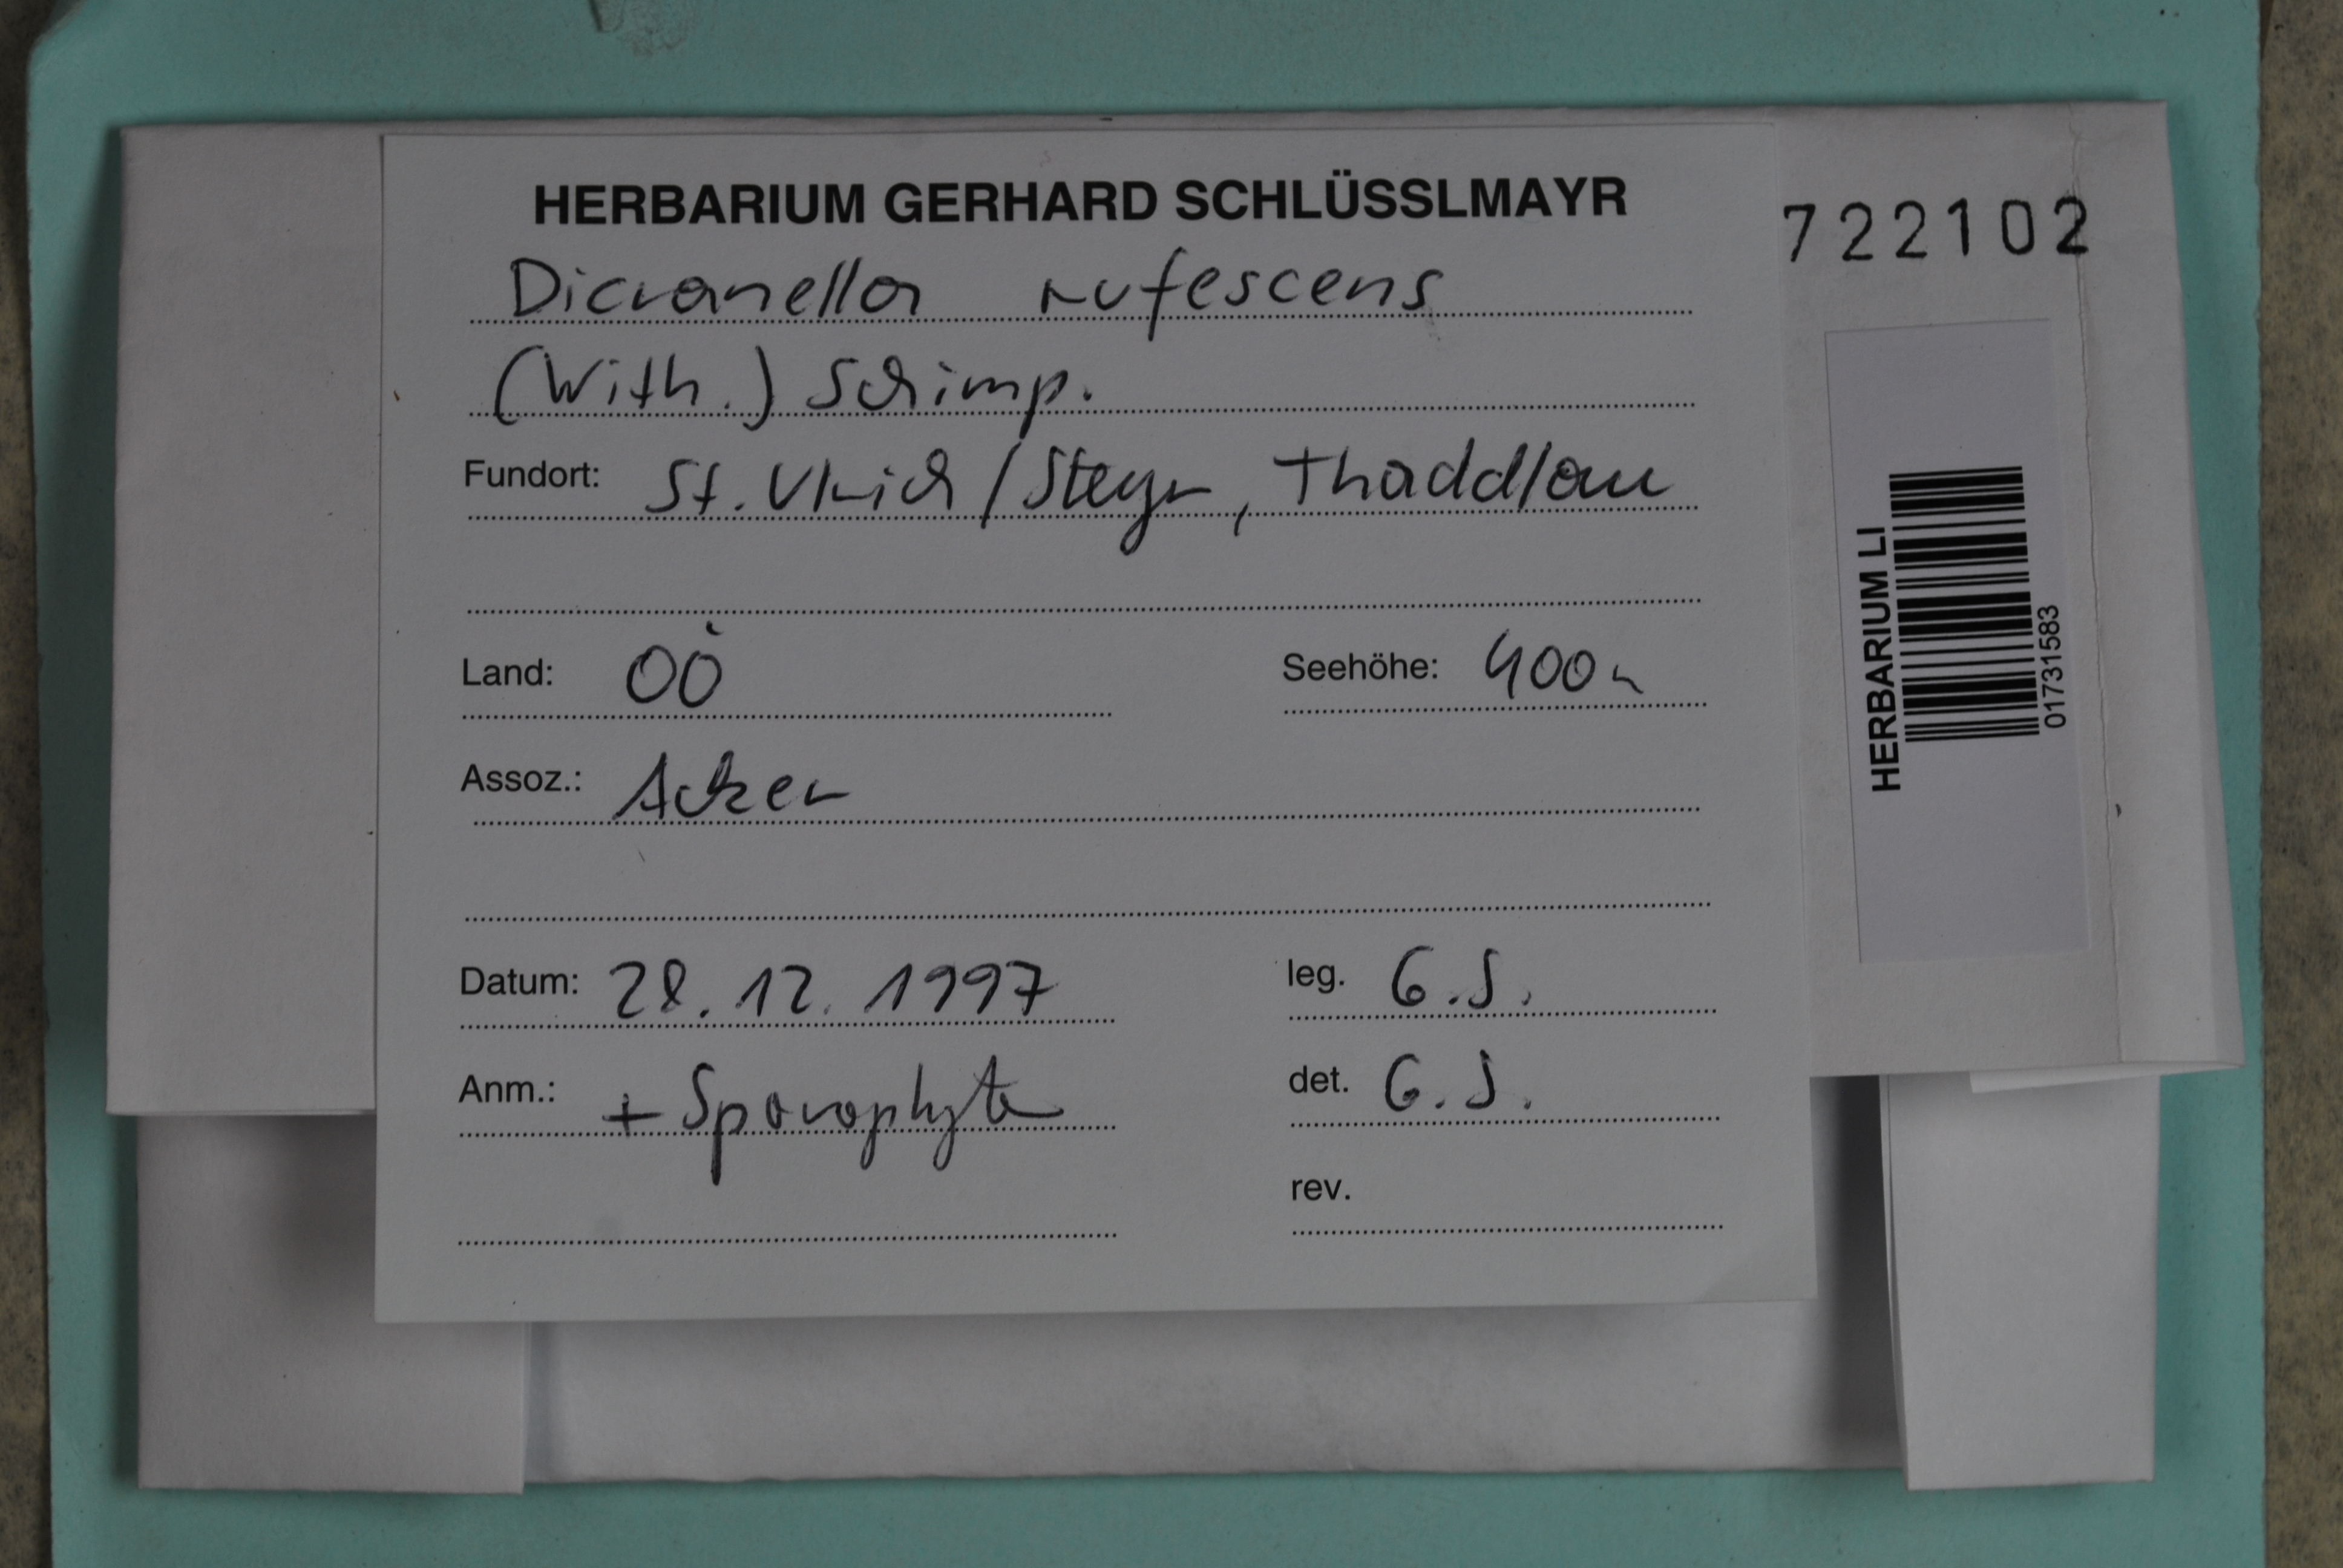 HERBARIUM GERHARD SCHLÜSSLMAYR
722102
Dicranella rufescens
(With.) Schimp.
Fundort: St. Ulrich / Steyr, Thaddlau
Land: OÖ
Seehöhe: 400m
Assoz.: Acker
Datum: 28.12.1997
leg. G.S.
Anm.: + Sporophyte
det. G.S.
rev.
HERBARIUM LI
01731583